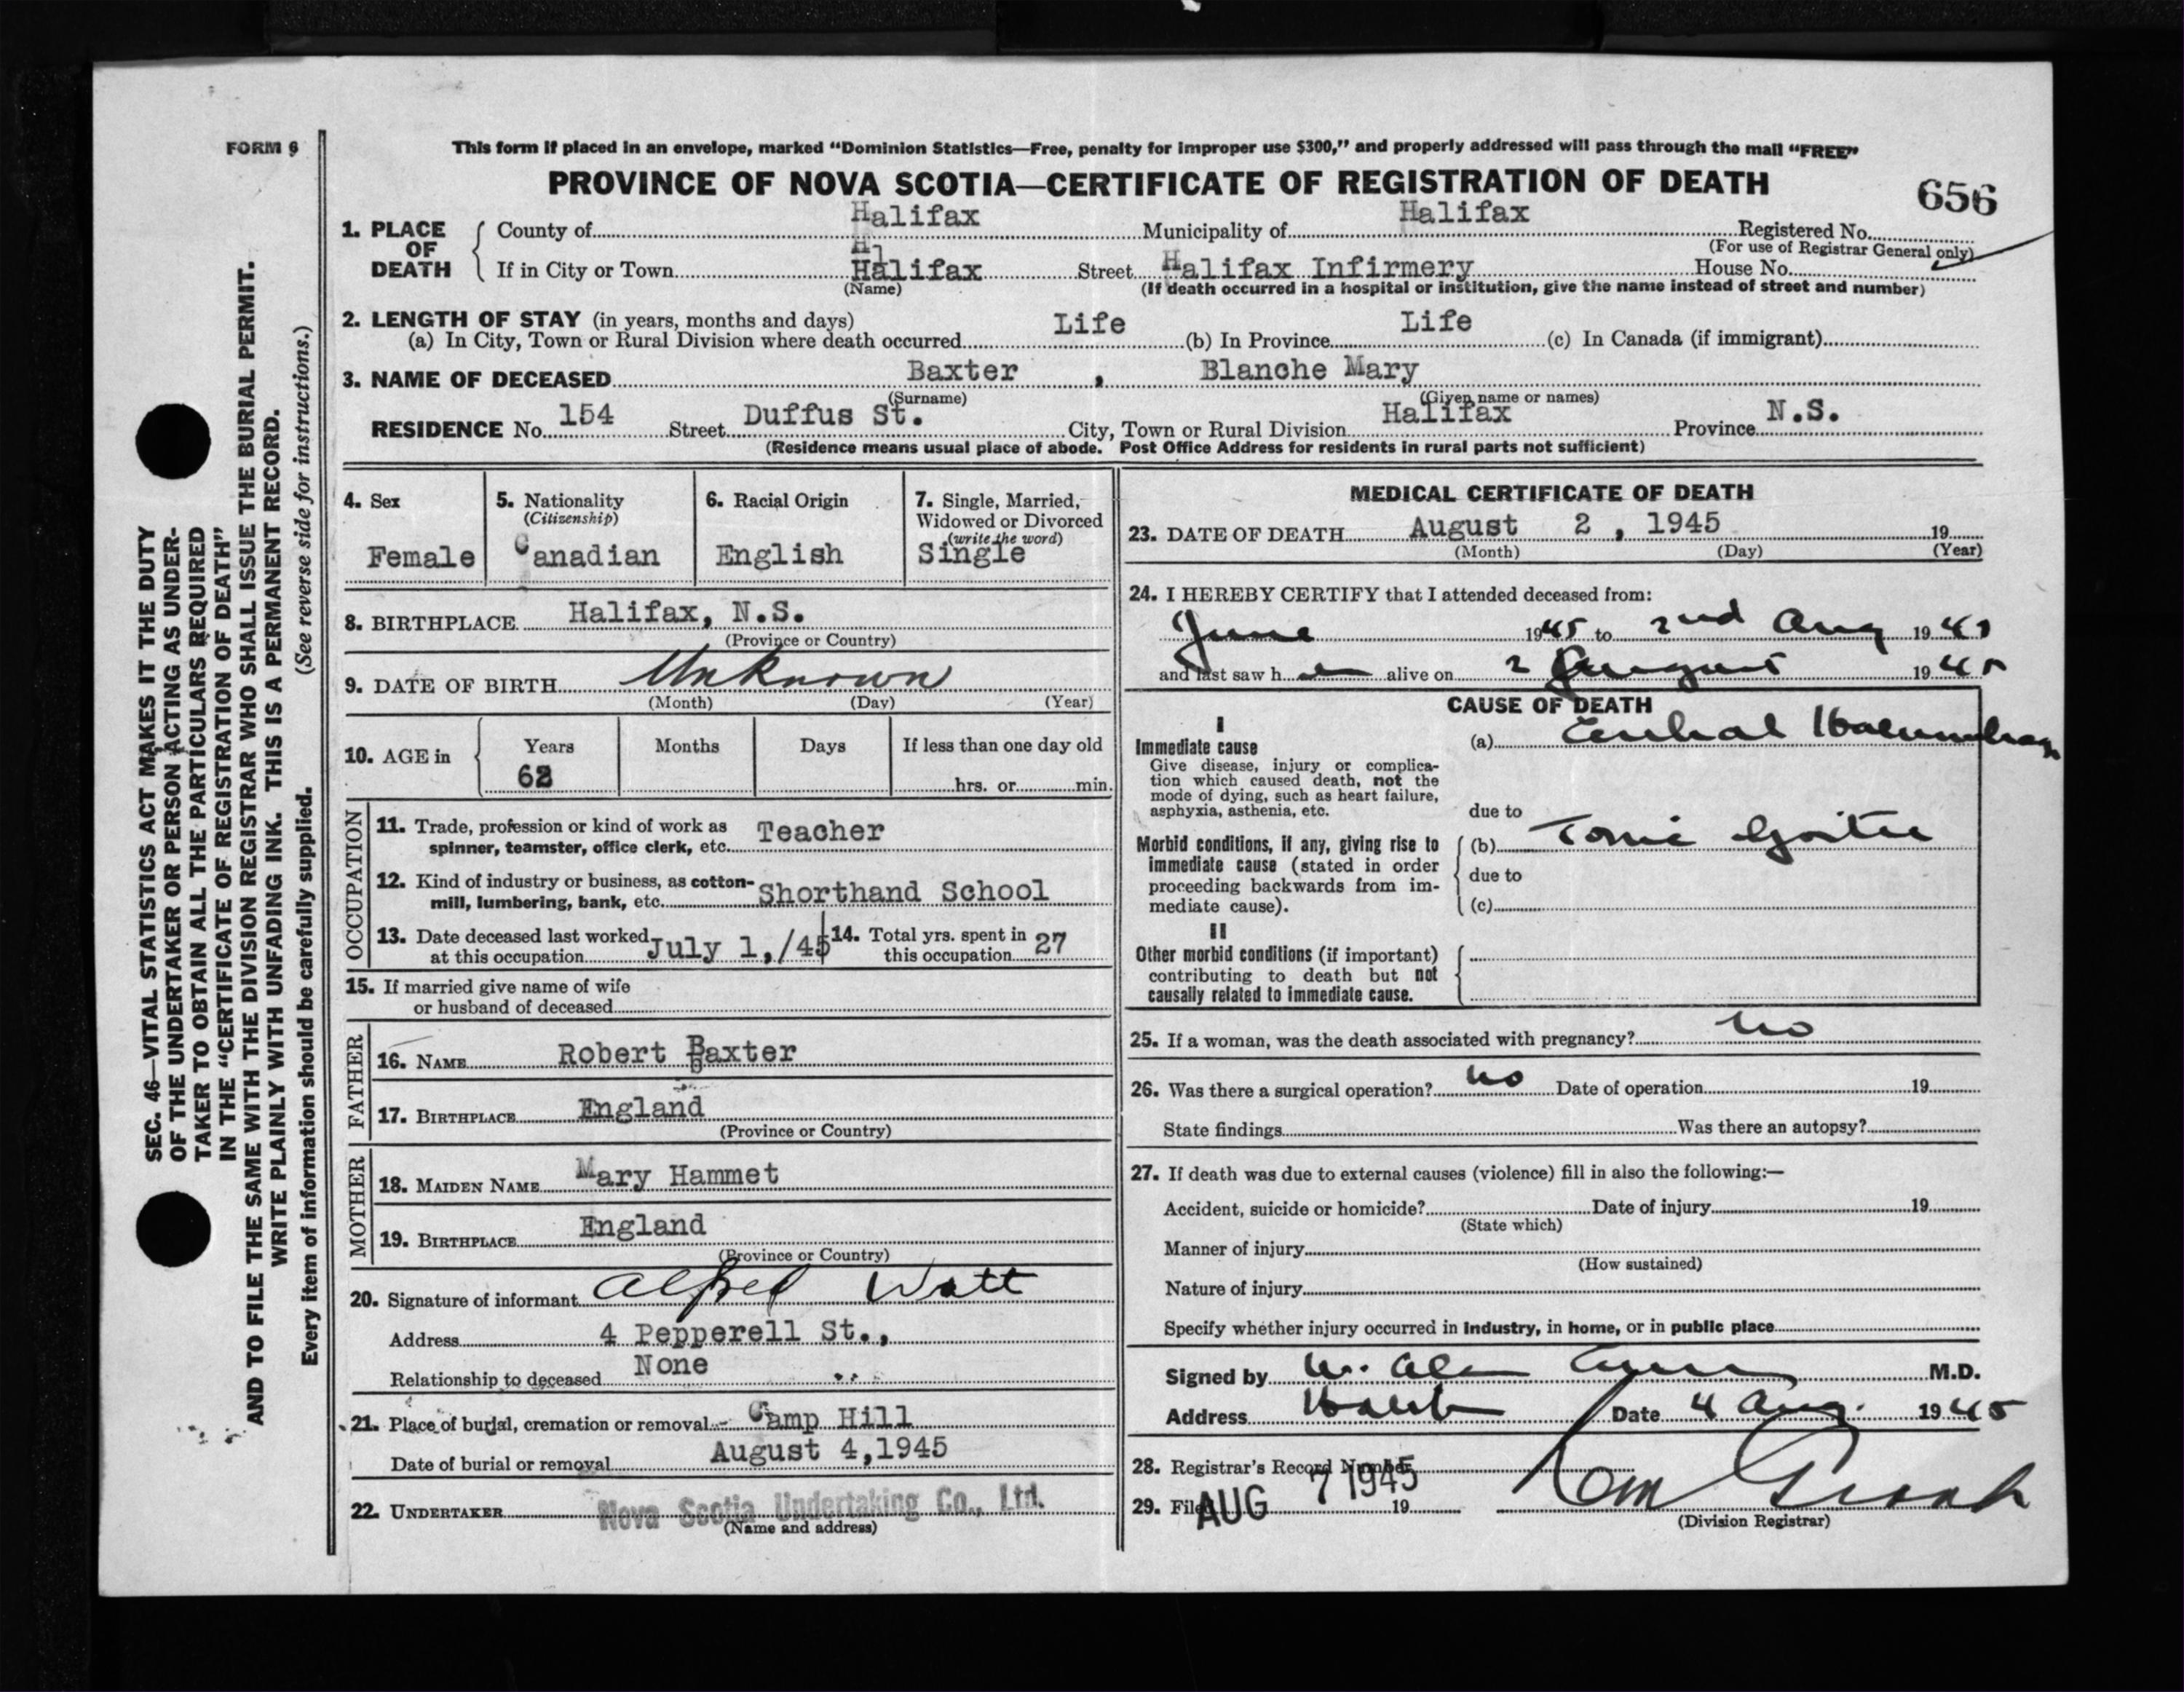 FORM 9
This form if placed in an envelope, marked “Dominion Statistics—Free, penalty for improper use $300,” and properly addressed will pass through the mail “FREE”
PROVINCE OF NOVA SCOTIA—CERTIFICATE OF REGISTRATION OF DEATH
656
1. PLACE OF DEATH
County of Halifax Municipality of Halifax Registered No.
(For use of Registrar General only)
If in City or Town Halifax Street Halifax Infirmery House No.
(Name) (If death occurred in a hospital or institution, give the name instead of street and number)
2. LENGTH OF STAY (in years, months and days)
(a) In City, Town or Rural Division where death occurred Life (b) In Province Life (c) In Canada (if immigrant)
3. NAME OF DECEASED Baxter , Blanche Mary
(Surname) (Given name or names)
RESIDENCE No. 154 Street Duffus St. City, Town or Rural Division Halifax Province N.S.
(Residence means usual place of abode. Post Office Address for residents in rural parts not sufficient)
4. Sex
Female
5. Nationality
(Citizenship)
Canadian
6. Racial Origin
English
7. Single, Married,
Widowed or Divorced
(write the word)
Single
8. BIRTHPLACE Halifax, N.S.
(Province or Country)
9. DATE OF BIRTH Unknown
(Month) (Day) (Year)
10. AGE in
Years Months Days If less than one day old
hrs. or min.
OCCUPATION
11. Trade, profession or kind of work as
spinner, teamster, office clerk, etc. Teacher
12. Kind of industry or business, as cotton-
mill, lumbering, bank, etc. Shorthand School
13. Date deceased last worked
at this occupation July 1,/45
14. Total yrs. spent in
this occupation 27
15. If married give name of wife
or husband of deceased
FATHER
16. NAME Robert Baxter
17. BIRTHPLACE England
(Province or Country)
MOTHER
18. MAIDEN NAME Mary Hammet
19. BIRTHPLACE England
(Province or Country)
20. Signature of informant Alfred Watt
Address 4 Pepperell St.,
Relationship to deceased None
21. Place of burial, cremation or removal Camp Hill
Date of burial or removal August 4,1945
22. UNDERTAKER Nova Scotia Undertaking Co., Ltd.
(Name and address)
MEDICAL CERTIFICATE OF DEATH
23. DATE OF DEATH August 2 , 1945 19
(Month) (Day) (Year)
24. I HEREBY CERTIFY that I attended deceased from:
June 1945 to 2nd Aug 1945
and last saw h alive on 2 August 1945
CAUSE OF DEATH
I
Immediate cause
Give disease, injury or complica-
tion which caused death, not the
mode of dying, such as heart failure,
asphyxia, asthenia, etc.
(a)
due to
Morbid conditions, if any, giving rise to
immediate cause (stated in order
proceeding backwards from im-
mediate cause).
(b) Goitre
due to
(c)
II
Other morbid conditions (if important)
contributing to death but not
causally related to immediate cause.
25. If a woman, was the death associated with pregnancy? no
26. Was there a surgical operation? no Date of operation 19
State findings Was there an autopsy?
27. If death was due to external causes (violence) fill in also the following:—
Accident, suicide or homicide? Date of injury 19
(State which)
Manner of injury
(How sustained)
Nature of injury
Specify whether injury occurred in industry, in home, or in public place
Signed by M.D.
Address Date 4 Aug. 1945
28. Registrar's Record Number
29. Filed AUG 7 1945 19
(Division Registrar)
SEC. 46—VITAL STATISTICS ACT MAKES IT THE DUTY
OF THE UNDERTAKER OR PERSON ACTING AS UNDER-
TAKER TO OBTAIN ALL THE PARTICULARS REQUIRED
IN THE “CERTIFICATE OF REGISTRATION OF DEATH”
AND TO FILE THE SAME WITH THE DIVISION REGISTRAR WHO SHALL ISSUE THE BURIAL PERMIT.
WRITE PLAINLY WITH UNFADING INK. THIS IS A PERMANENT RECORD.
Every item of information should be carefully supplied. (See reverse side for instructions.)